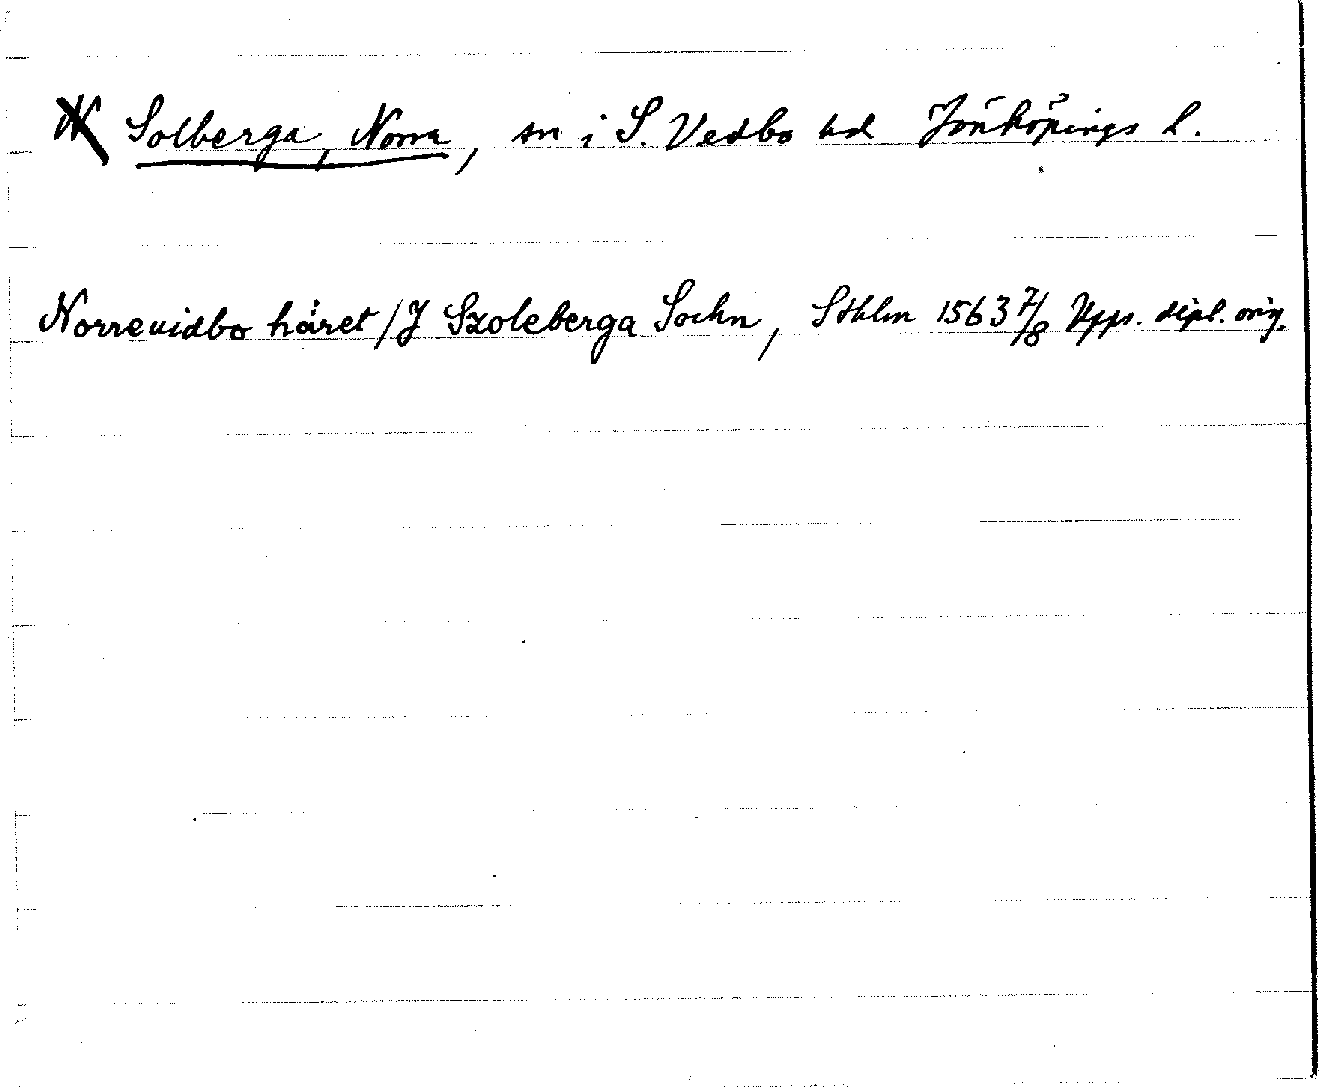 Solberga, Norra, sn i S. Vedbo hd Jönköpings l.
Norrevidbo häret / J Szoleberga Sochn, Sthlm 1563 7/8 Upps. dipl. orig.